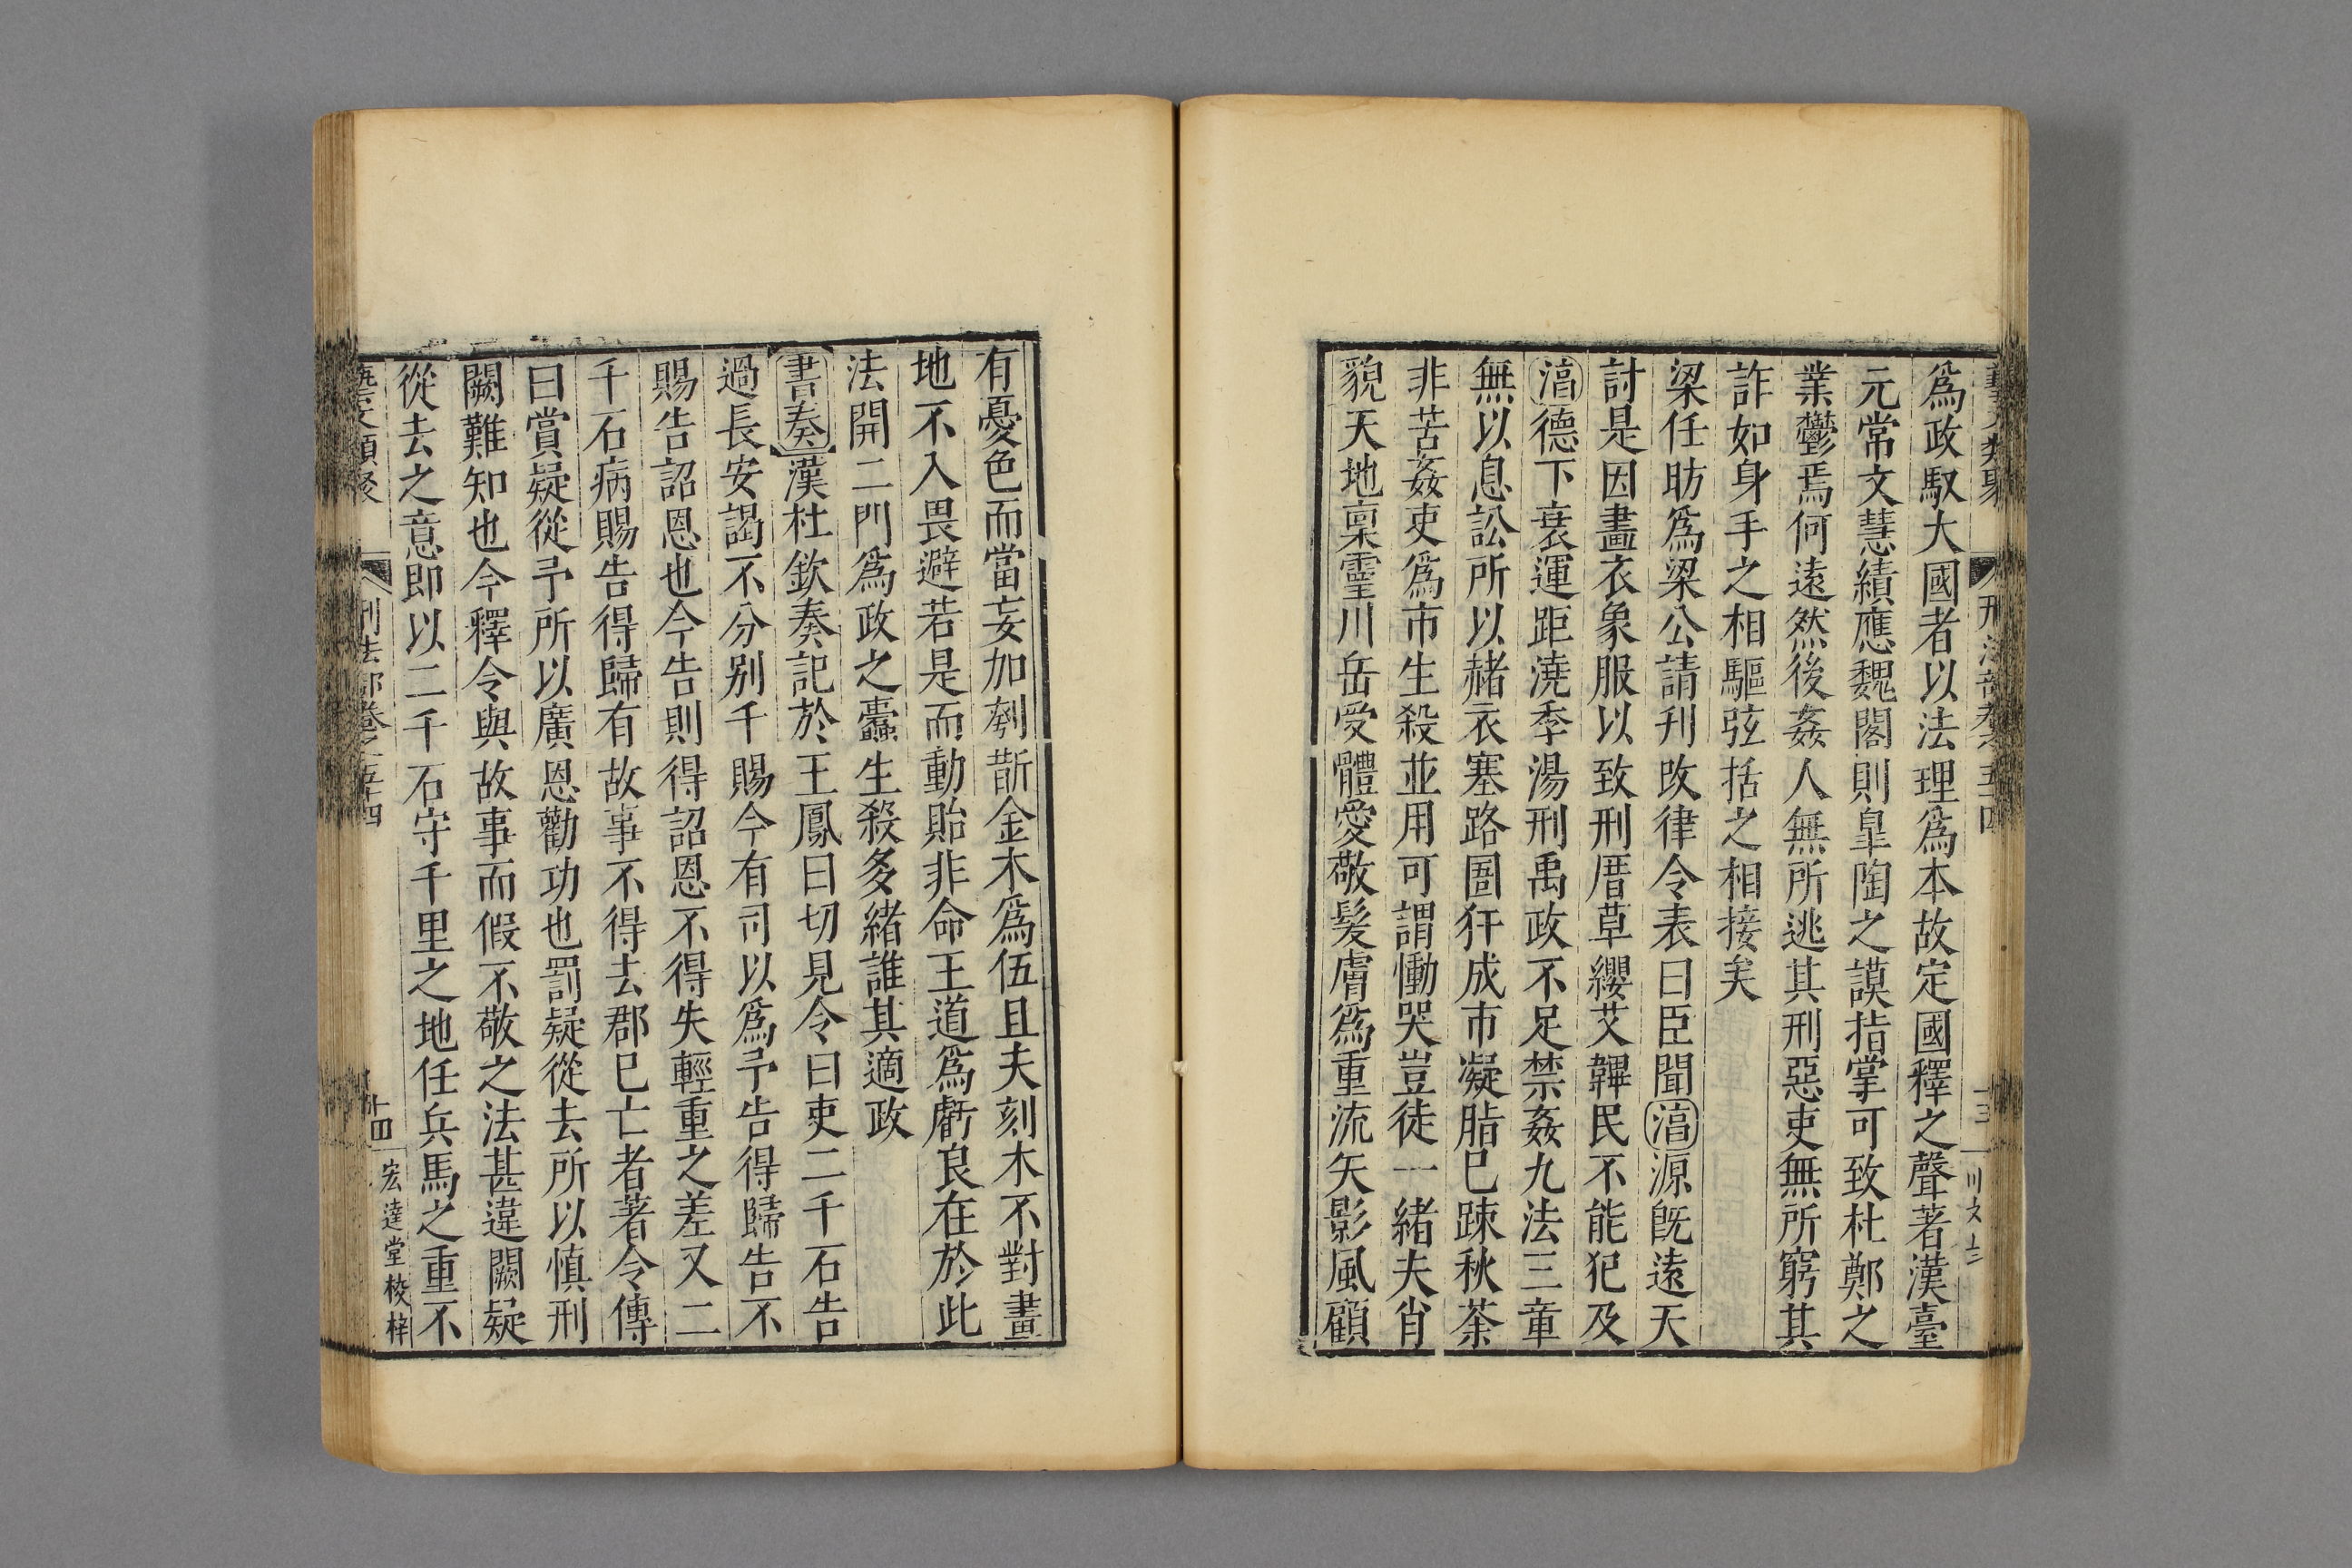 藝文類聚 刑法部卷之五十四
爲政馭大國者以法理爲本故定國釋之聲著漢臺
元常文慧績應魏閣則臯陶之謨指掌可致杜鄭之
業鬱焉何遠然後姦人無所逃其刑惡吏無所窮其
詐如身手之相驅弦括之相接矣
梁任昉爲梁公請刋改律令表曰臣聞淳源旣遠天
討是因畫衣象服以致刑厝草纓艾韠民不能犯及
淳德下衰運距澆季湯刑禹政不足禁姦九法三章
無以息訟所以赭衣塞路圄犴成市凝脂已踈秋荼
非苦姦吏爲市生殺並用可謂慟哭豈徒一緒夫肖
貌天地稟靈川岳受體愛敬髪膚爲重流矢影風顧
有憂色而當妄加刳斮金木爲伍且夫刻木不對畫
地不入畏避若是而動貽非命王道爲虧良在於此
法開二門爲政之蠧生殺多緒誰其適政
書奏漢杜欽奏記於王鳳曰切見令曰吏二千石告
過長安謁不分别千賜今有司以爲予告得歸告不
賜告詔恩也今告則得詔恩不得失輕重之差又二
千石病賜告得歸有故事不得去郡已亡者著令傳
曰賞疑從予所以廣恩勸功也罰疑從去所以慎刑
闕難知也今釋令與故事而假不敬之法甚違闕疑
從去之意即以二千石守千里之地任兵馬之重不
藝文類聚 刑法部卷之五十四 十四 宏達堂校梓